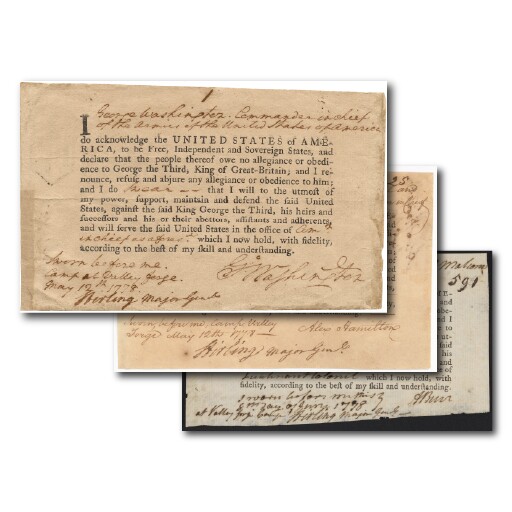 1
George Washington, Commander in chief
of the armies of the United States of America
I do acknowledge the UNITED STATES of AME-
RICA, to be Free, Independent and Sovereign States, and
declare that the people thereof owe no allegiance or obedi-
ence to George the Third, King of Great-Britain; and I re-
nounce, refuse and abjure any allegiance or obedience to him;
and I do swear that I will to the utmost of
my power, support, maintain and defend the said United
States, against the said King George the Third, his heirs and
successors and his or their abettors, assistants and adherents,
and will serve the said United States in the office of Com
in chief as aforesd. which I now hold, with fidelity,
according to the best of my skill and understanding.
Sworn before me
Camp at Valley forge
May 12th 1778
Go Washington
Stirling Major Genl
25
Sworn before me, Camp Valley
Forge May 12th 1778
Alex Hamilton
Stirling, Major Genl.
591
Lieutenant Colonel which I now hold, with
fidelity, according to the best of my skill and understanding.
Sworn before me this
1778
at Valley forge Camp
ABurr
Stirling Major Genl